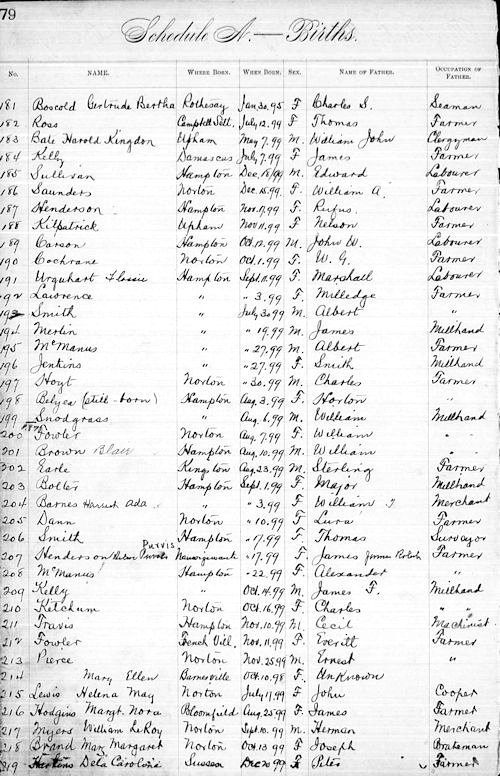 79
Schedule A.—Births.
No. NAME. WHERE BORN. WHEN BORN. SEX. NAME OF FATHER. OCCUPATION OF FATHER.
181 Boscold Gertrude Bertha Rothesay Jan. 30. 95 F Charles S. Seaman
182 Ross Campbell Sett. July. 12. 99 F Thomas Farmer
183 Bate Harold Kingdon Upham May 7. 99 M. William John Clergyman
184 Kelly Damascus July 7. 99 F James Farmer
185 Sullivan Hampton Dec. 18/99 M. Edward Labourer
186 Saunders Norton Dec. 15. 99 F. William A. Farmer
187 Henderson Hampton Nov. 17. 99 F. Rufus. Labourer
188 Kilpatrick Upham Nov. 11. 99 F. Nelson Farmer
189 Carson Hampton Oct. 12. 99 M. John W. Labourer
190 Cochrane Norton Oct. 1. 99 F. W. G. Farmer
191 Urquhart Flossie Hampton Sept. 11. 99 F. Marshall Labourer
192 Lawrence " " 3. 99 F. Milledge Farmer
193 Smith " July 30 99 M. Albert "
194 Merlin " " 19. 99 M. James Millhand
195 McManus " " 27. 99 M. Albert Farmer
196 Jenkins " " 27. 99 F. Smith Millhand
197 Hoyt Norton " 30. 99 M. Charles Farmer
198 Belyea (still-born) Hampton Aug. 3. 99 F. Horton "
199 Snodgrass " Aug. 6. 99 M. William Millhand
200 Fowler Norton Aug. 7. 99 F. William " "
201 Brown Blair Hampton Aug. 10. 99 M. William "
202 Earle Kingston Aug. 23. 99 M. Sterling Farmer
203 Bolter Hampton Sept. 1. 99 F. Major Millhand
204 Barnes Harriet Ada " " 3. 99 F. William T Merchant
205 Dann Norton " 10. 99 F. Lura Farmer
206 Smith Hampton " 17. 99 F. Thomas Surveyor
Purvis
207 Henderson " 17. 99 F. James Farmer
208 McManus Hampton " 22. 99 F. Alexander "
209 Kelly " Oct. 4. 99 M. James F. Millhand
210 Ketchum Norton Oct. 16. 99 F. Charles "
211 Travis Hampton Nov. 10. 99 M. Cecil Machinist
212 Fowler French Vill. Nov. 11. 99 F. Everitt Farmer
213 Pierce Norton Nov. 25. 99 M. Ernest "
214 Mary Ellen Barnesville Oct. 10. 98 F. Unknown
215 Lewis Helena May Norton July 17. 99 F John Cooper
216 Hodgins Margt. Nora Bloomfield Aug. 25 99 F. James Farmer
217 Myers William LeRoy Norton Sept. 10. 99 M. Herman Merchant
218 Brand Mary Margaret Norton Oct. 13 99 F Joseph Brakeman
219 Deta Carolina Sussex Dec 20 99 F Peter Farmer